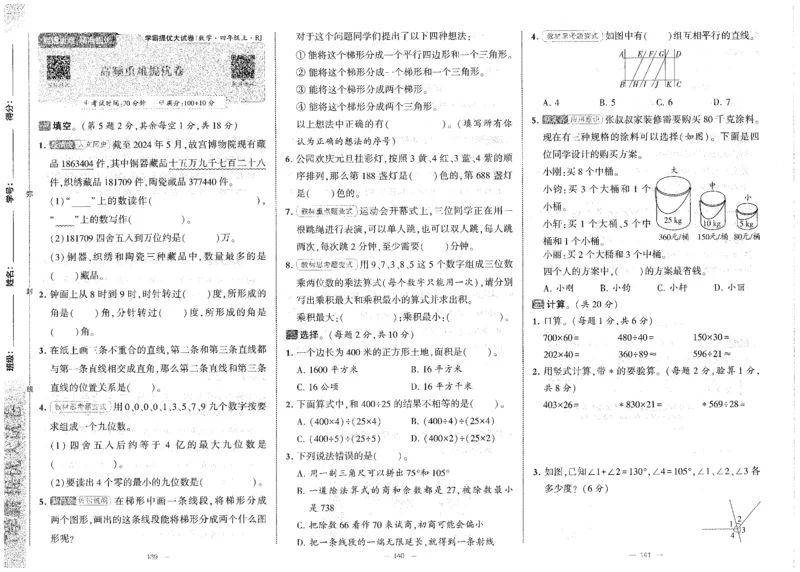 学霸提优大试卷 | 数学·四年级上·RJ
高频重难提优卷
考试时间:70分钟 满分:100+10分
一、填空。(第5题2分,其余每空1分,共18分)
1. 截至2024年5月,故宫博物院现有藏
品1863404件,其中铜器藏品十五万九千七百二十八
件,织绣藏品181709件,陶瓷藏品377440件。
(1)“ ”上的数读作( ),
“ ”上的数写作( )。
(2)181709四舍五入到万位约是( )万。
(3)铜器、织绣和陶瓷三种藏品中,数量最多的是
( )藏品。
2. 钟面上从8时到9时,时针转过( )度,所形成的
角是( )角,分针转过( )度,所形成的角是
( )角。
3. 在纸上画三条不重合的直线,第二条和第三条直线都
与第一条直线相交成直角,那么第二条直线和第三条
直线的位置关系是( )。
4. 教材思考题变式 用0,0,0,0,1,3,5,7,9九个数字按要
求组成一个九位数。
(1)四舍五入后约等于4亿的最大九位数是
( )。
(2)要读出4个零的最小的九位数是( )。
5. 在梯形中画一条线段,将梯形分成
两个图形,画出的这条线段能将梯形分成两个什么图
形呢?
139
对于这个问题同学们提出了以下四种想法:
①能将这个梯形分成一个平行四边形和一个三角形。
②能将这个梯形分成一个梯形和一个三角形。
③能将这个梯形分成两个梯形。
④能将这个梯形分成两个三角形。
以上想法中正确的有( )。(填写所有你
认为正确的想法的序号)
6. 公园欢庆元旦挂彩灯,按照3黄、4红、3蓝、4紫的顺
序排列,那么第188盏灯是( )色的,第688盏灯
是( )色的。
7. 教材重点题变式 运动会开幕式上,三位同学正在用一
根跳绳进行表演,可以单人跳,也可以双人跳,每人跳
两次,每次跳2分钟,至少需要( )分钟。
8. 教材思考题变式 用9,7,3,8,5这5个数字组成三位数
乘两位数的乘法算式(每个数字只能用一次),请分别
写出乘积最大和乘积最小的算式并求出积。
乘积最大:( );乘积最小:( )。
二、选择。(每题2分,共10分)
1. 一个边长为400米的正方形土地,面积是( )。
A. 1600平方米 B. 16平方米
C. 16公顷 D. 16平方千米
2. 下面算式中,和400÷25的结果不相等的是( )。
A. (400×4)÷(25×4) B. (400÷4)÷(25×4)
C. (400÷5)÷(25÷5) D. (400×2)÷(25×2)
3. 下列说法错误的是( )。
A. 用一副三角尺可以拼出75°和105°
B. 一道除法算式的商和余数都是27,被除数最小
是738
C. 把除数66看作70来试商,初商可能会偏小
D. 把一条线段的一端无限延长,就得到一条射线
140
4. 教材思考题变式 如图中有( )组互相平行的直线。
A E F G D
B H I J K C
A. 4 B. 5 C. 6 D. 7
5. 张叔叔家装修需要购买80千克涂料。
现在有三种规格的涂料可以选择(如图)。下面是四
位同学设计的购买方案。
小刚:买8个中桶。
小钧:买3个大桶和1个
小桶。
小轩:买1个大桶、5个中
桶和1个小桶。
小丽:买2个大桶和3个中桶。
大 中 小
25 kg 10 kg 5 kg
360元/桶 150元/桶 80元/桶
四个人的方案中,( )的方案最省钱。
A. 小刚 B. 小钧 C. 小轩 D. 小丽
三、计算。(共20分)
1. 口算。(每题1分,共6分)
700×60= 480÷40= 150×30=
202×40≈ 360÷89≈ 596÷21≈
2. 用竖式计算,带*的要验算。(每题2分,验算1分,
共8分)
403×26= *830×21= *569÷28=
3. 如图,已知∠1+∠2=130°,∠4=105°,∠1、∠2、∠3各
多少度?(6分)
1 2 3 4
141
得分:
学号:
姓名:
班级:
密
封
线